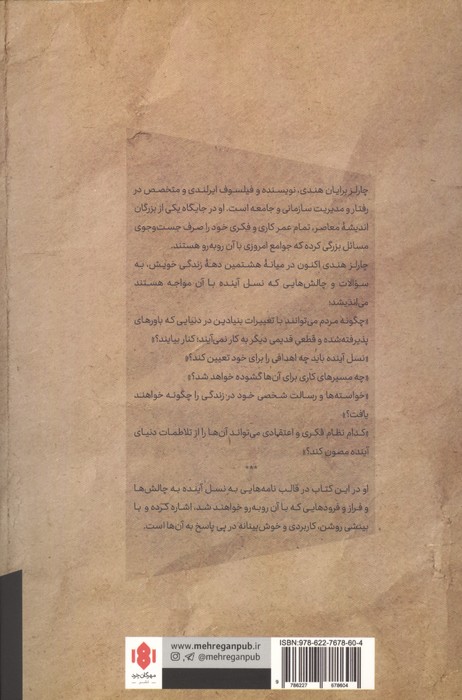 چارلز برایان هندی، نویسنده و فیلسوف ایرلندی و متخصص در
رفتار و مدیریت سازمانی و جامعه است. او در جایگاه یکی از بزرگان
اندیشهٔ معاصر، تمام عمر کاری و فکری خود را صرف جست‌وجوی
مسائل بزرگی کرده که جوامع امروزی با آن روبه‌رو هستند.
چارلز هندی اکنون در میانهٔ هشتمین دههٔ زندگی خویش، به
سؤالات و چالش‌هایی که نسل آینده با آن مواجه هستند
می‌اندیشد:
«چگونه مردم می‌توانند با تغییرات بنیادین در دنیایی که باورهای
پذیرفته‌شده و قطعی قدیمی دیگر به کار نمی‌آیند؛ کنار بیایند؟»
«نسل آینده باید چه اهدافی را برای خود تعیین کند؟»
«چه مسیرهای کاری برای آن‌ها گشوده خواهد شد؟»
«خواسته‌ها و رسالت شخصی خود در زندگی را چگونه خواهند
یافت؟»
«کدام نظام فکری و اعتقادی می‌تواند آن‌ها را از تلاطمات دنیای
آینده مصون کند؟»
***
او در این کتاب در قالب نامه‌هایی به نسل آینده به چالش‌ها
و فراز و فرودهایی که با آن روبه‌رو خواهند شد، اشاره کرده و با
بینشی روشن، کاربردی و خوش‌بینانه در پی پاسخ به آن‌ها است.
مهرگان خرد
نشر
www.mehreganpub.ir
@mehreganpub
ISBN: 978-622-7678-60-4
9 786227 678604